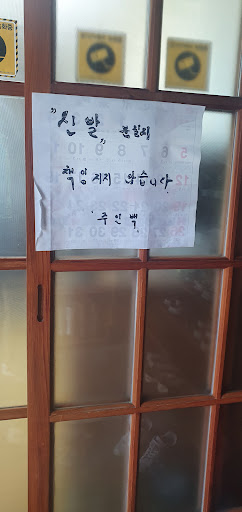 "신발" 분실시
책임지지 않습니다.
주인백